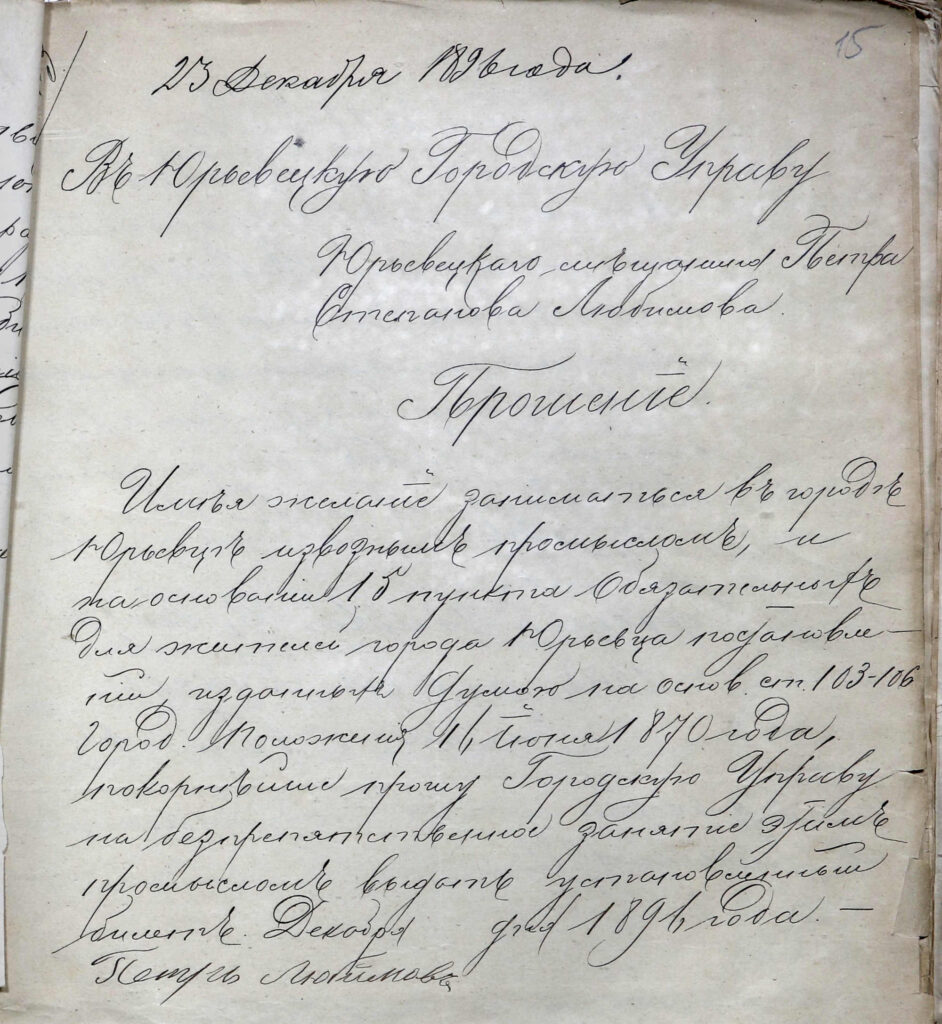 15
23 Декабря 1896 года.
Въ Юрьевецкую Городскую Управу
Юрьевецкаго мѣщанина Петра
Степанова Любимова.
Прошеніе.
Имѣя желаніе заниматься въ городѣ
Юрьевцѣ извознымъ промысломъ, и
на основаніи 15 пункта Обязательныхъ
для жителей города Юрьевца постановле-
ній, изданныхъ Думою на основ. ст. 103-106
Город. Положенія 16 Іюня 1870 года,
покорнѣйше прошу Городскую Управу
на безпрепятственное занятіе этимъ
промысломъ выдать установленный
билетъ. Декабря дня 1896 года. —
Петръ Любимовъ